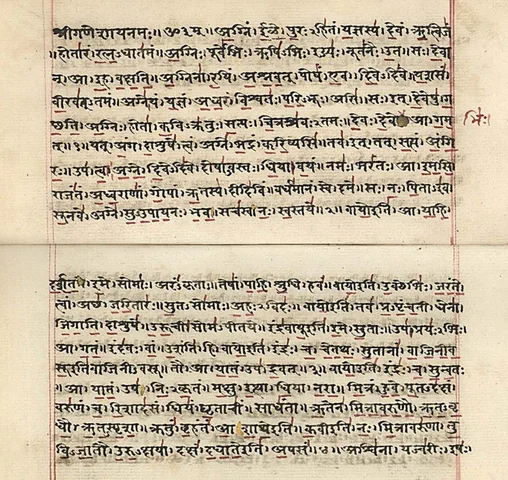 श्रीगणेशायनमः॥ॐ३म्॥ अग्निं। ईळे। पुरःऽहितं। यज्ञस्य। देवं। ऋत्विजं
।होतारं। रत्नऽधातमं। अग्निः। पूर्वेभिः। ऋषिऽभिः। ईड्यः। नूतनैः। उत। सः। देवा
न्। आ। इह। वक्षति। अग्निना। रयिं। अश्नवत्। पोषं। एव। दिवेऽदिवे। यशसं।
वीरवत्ऽतमं। अग्ने। यं। यज्ञं। अध्वरं। विश्वतः। परिऽभूः। असि। सः। इत्। देवेषु। ग
च्छति। अग्निः। होता। कविऽक्रतुः। सत्यः। चित्रश्रवःऽतमः। देवः। देवे। आ। गम
भिः।
त्॥१॥ यत्। अंग। दाशुषे। त्वं। अग्ने। भद्रं। करिष्यसि। तव। इत्। तत्। सत्यं। अंगि
रः। उप। त्वा। अग्ने। दिवेऽदिवे। दोषाऽवस्तः। धिया। वयं। नमः। भरंतः। आ। इमसि
राजंतं। अध्वराणां। गोपां। ऋतस्य। दीदिविं। वर्धमानं। स्वे। दमे। सः। नः। पिताऽइव।
सूनवे। अग्ने। सुऽउपायनः। भव। सचस्व। नः। स्वस्तये॥२॥ वायो इति। आ। याहि।
दर्शत। इमे। सोमाः। अरंऽकृताः। तेषां। पाहि। श्रुधि। हवं। वायो इति। उक्थेभिः। जरंते
त्वां। अच्छ। जरितारः। सुतऽसोमाः। अहःऽविदः। वायो इति। तव। प्रऽपृंचती। धेना
जिगाति। दाशुषे। उरूची। सोमऽपीतये। इंद्रवायू इति। इमे। सुताः। उप। प्रयःऽभिः।
आ। गतं। इंदवः। वां। उशंति। हि। वायो इति। इंद्रः। च। चेतथः। सुतानां। वाजिनीव
सू इति वाजिनीऽवसू। तौ। आ। यातं। उप। द्रवत्॥३॥ वायो इति। इंद्रः। च। सुन्वतः
।आ। यातं। उप। निःऽकृतं। मक्षु। इत्था। धिया। नरा। मित्रं। हुवे। पूतऽदक्षं।
वरुणं। च। रिशादसं। धियं। घृताचीं। साधंता। ऋतेन। मित्रावरुणौ। ऋतऽवृ
धौ। ऋतऽस्पृशा। क्रतुं। बृहंतं। आशाथे इति। कवी इति। नः। मित्रावरुणा। तु
विऽजातौ। उरुऽक्षया। दक्षं। दधाते इति। अपसं॥४॥ अश्विना। यज्वरीः। इषः।